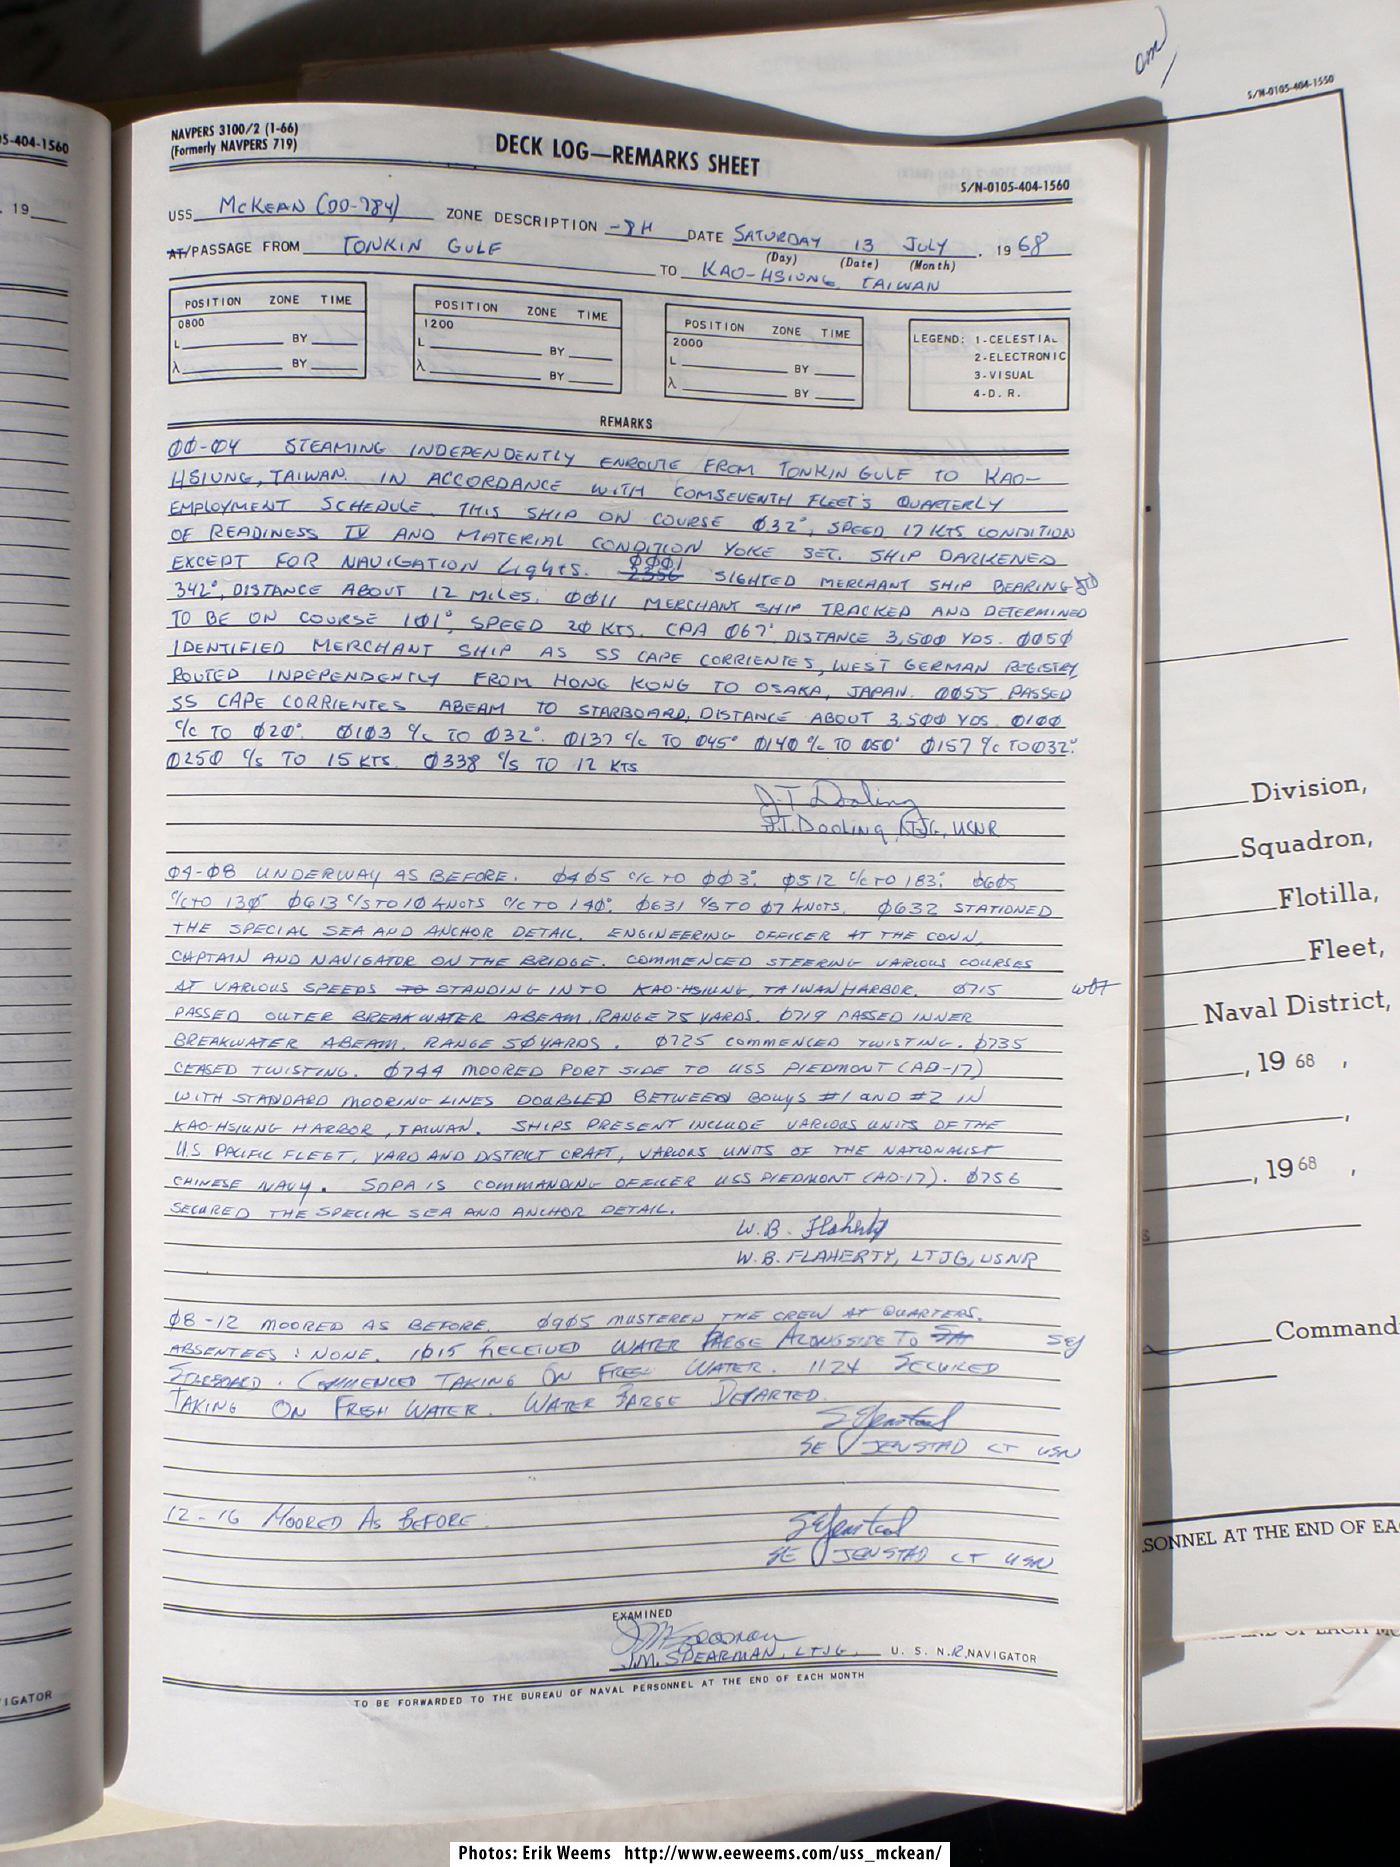 05-404-1560
19
IGATOR
NAVPERS 3100/2 (1-66)
(Formerly NAVPERS 719)
DECK LOG—REMARKS SHEET
S/N-0105-404-1560
USS McKEAN (DD-784) ZONE DESCRIPTION -8H DATE SATURDAY 13 JULY, 1968
(Day) (Date) (Month)
AT/PASSAGE FROM TONKIN GULF TO KAO-HSIUNG, TAIWAN
POSITION ZONE TIME
0800
L BY
λ BY
POSITION ZONE TIME
1200
L BY
λ BY
POSITION ZONE TIME
2000
L BY
λ BY
LEGEND: 1-CELESTIAL
2-ELECTRONIC
3-VISUAL
4-D. R.
REMARKS
00-04 STEAMING INDEPENDENTLY ENROUTE FROM TONKIN GULF TO KAO-
HSIUNG, TAIWAN. IN ACCORDANCE WITH COMSEVENTH FLEET'S QUARTERLY
EMPLOYMENT SCHEDULE. THIS SHIP ON COURSE 032°, SPEED 17 KTS CONDITION
OF READINESS IV AND MATERIAL CONDITION YOKE SET. SHIP DARKENED
EXCEPT FOR NAVIGATION Lights. 0001 2356 SIGHTED MERCHANT SHIP BEARING
342°, DISTANCE ABOUT 12 MILES. 0011 MERCHANT SHIP TRACKED AND DETERMINED
TO BE ON COURSE 101°, SPEED 20 KTS. CPA 067° DISTANCE 3,500 YDS. 0050
IDENTIFIED MERCHANT SHIP AS SS CAPE CORRIENTES, WEST GERMAN REGISTRY
ROUTED INDEPENDENTLY FROM HONG KONG TO OSAKA, JAPAN. 0055 PASSED
SS CAPE CORRIENTES ABEAM TO STARBOARD, DISTANCE ABOUT 3,500 YDS. 0100
c/c TO 020°. 0103 c/c TO 032°. 0137 c/c TO 045° 0140 c/c TO 050° 0157 c/c TO 032°.
0250 c/s TO 15 KTS. 0338 c/s TO 12 KTS
J.T. Dooling
J.T. Dooling, LTJG, USNR
04-08 UNDERWAY AS BEFORE. 0405 c/c TO 003°. 0512 c/c TO 183°. 0605
c/c TO 130° 0613 c/s TO 10 KNOTS c/c TO 140°. 0631 c/s TO 07 KNOTS. 0632 STATIONED
THE SPECIAL SEA AND ANCHOR DETAIL. ENGINEERING OFFICER AT THE CONN,
CAPTAIN AND NAVIGATOR ON THE BRIDGE. COMMENCED STEERING VARIOUS COURSES
AT VARIOUS SPEEDS TO STANDING INTO KAO-HSIUNG, TAIWAN HARBOR. 0715
PASSED OUTER BREAKWATER ABEAM, RANGE 75 YARDS. 0719 PASSED INNER
BREAKWATER ABEAM, RANGE 50 YARDS. 0725 COMMENCED TWISTING. 0735
CEASED TWISTING. 0744 MOORED PORT SIDE TO USS PIEDMONT (AD-17)
WITH STANDARD MOORING LINES DOUBLED BETWEEN BOUYS #1 AND #2 IN
KAO-HSIUNG HARBOR, TAIWAN. SHIPS PRESENT INCLUDE VARIOUS UNITS OF THE
U.S PACIFIC FLEET, YARD AND DISTRICT CRAFT, VARIOUS UNITS OF THE NATIONALIST
CHINESE NAVY. SOPA IS COMMANDING OFFICER USS PIEDMONT (AD-17). 0756
SECURED THE SPECIAL SEA AND ANCHOR DETAIL.
W.B. Flaherty
W.B. FLAHERTY, LTJG, USNR
08-12 MOORED AS BEFORE. 0905 MUSTERED THE CREW AT QUARTERS.
ABSENTEES: NONE. 1015 RECEIVED WATER BARGE ALONGSIDE TO SEJ
STARBOARD. COMMENCED TAKING ON FRESH WATER. 1124 SECURED
TAKING ON FRESH WATER. WATER BARGE DEPARTED.
SEJenstad
SE JENSTAD LT USN
12-16 MOORED AS BEFORE.
SEJenstad
SE JENSTAD LT USN
EXAMINED
J.M. SPEARMAN, LTJG, U. S. N.R, NAVIGATOR
TO BE FORWARDED TO THE BUREAU OF NAVAL PERSONNEL AT THE END OF EACH MONTH
S/N-0105-404-1550
Division,
Squadron,
Flotilla,
Fleet,
Naval District,
, 19 68 ,
,
, 19 68 ,
Command
SONNEL AT THE END OF EA
Photos: Erik Weems http://www.eeweems.com/uss_mckean/